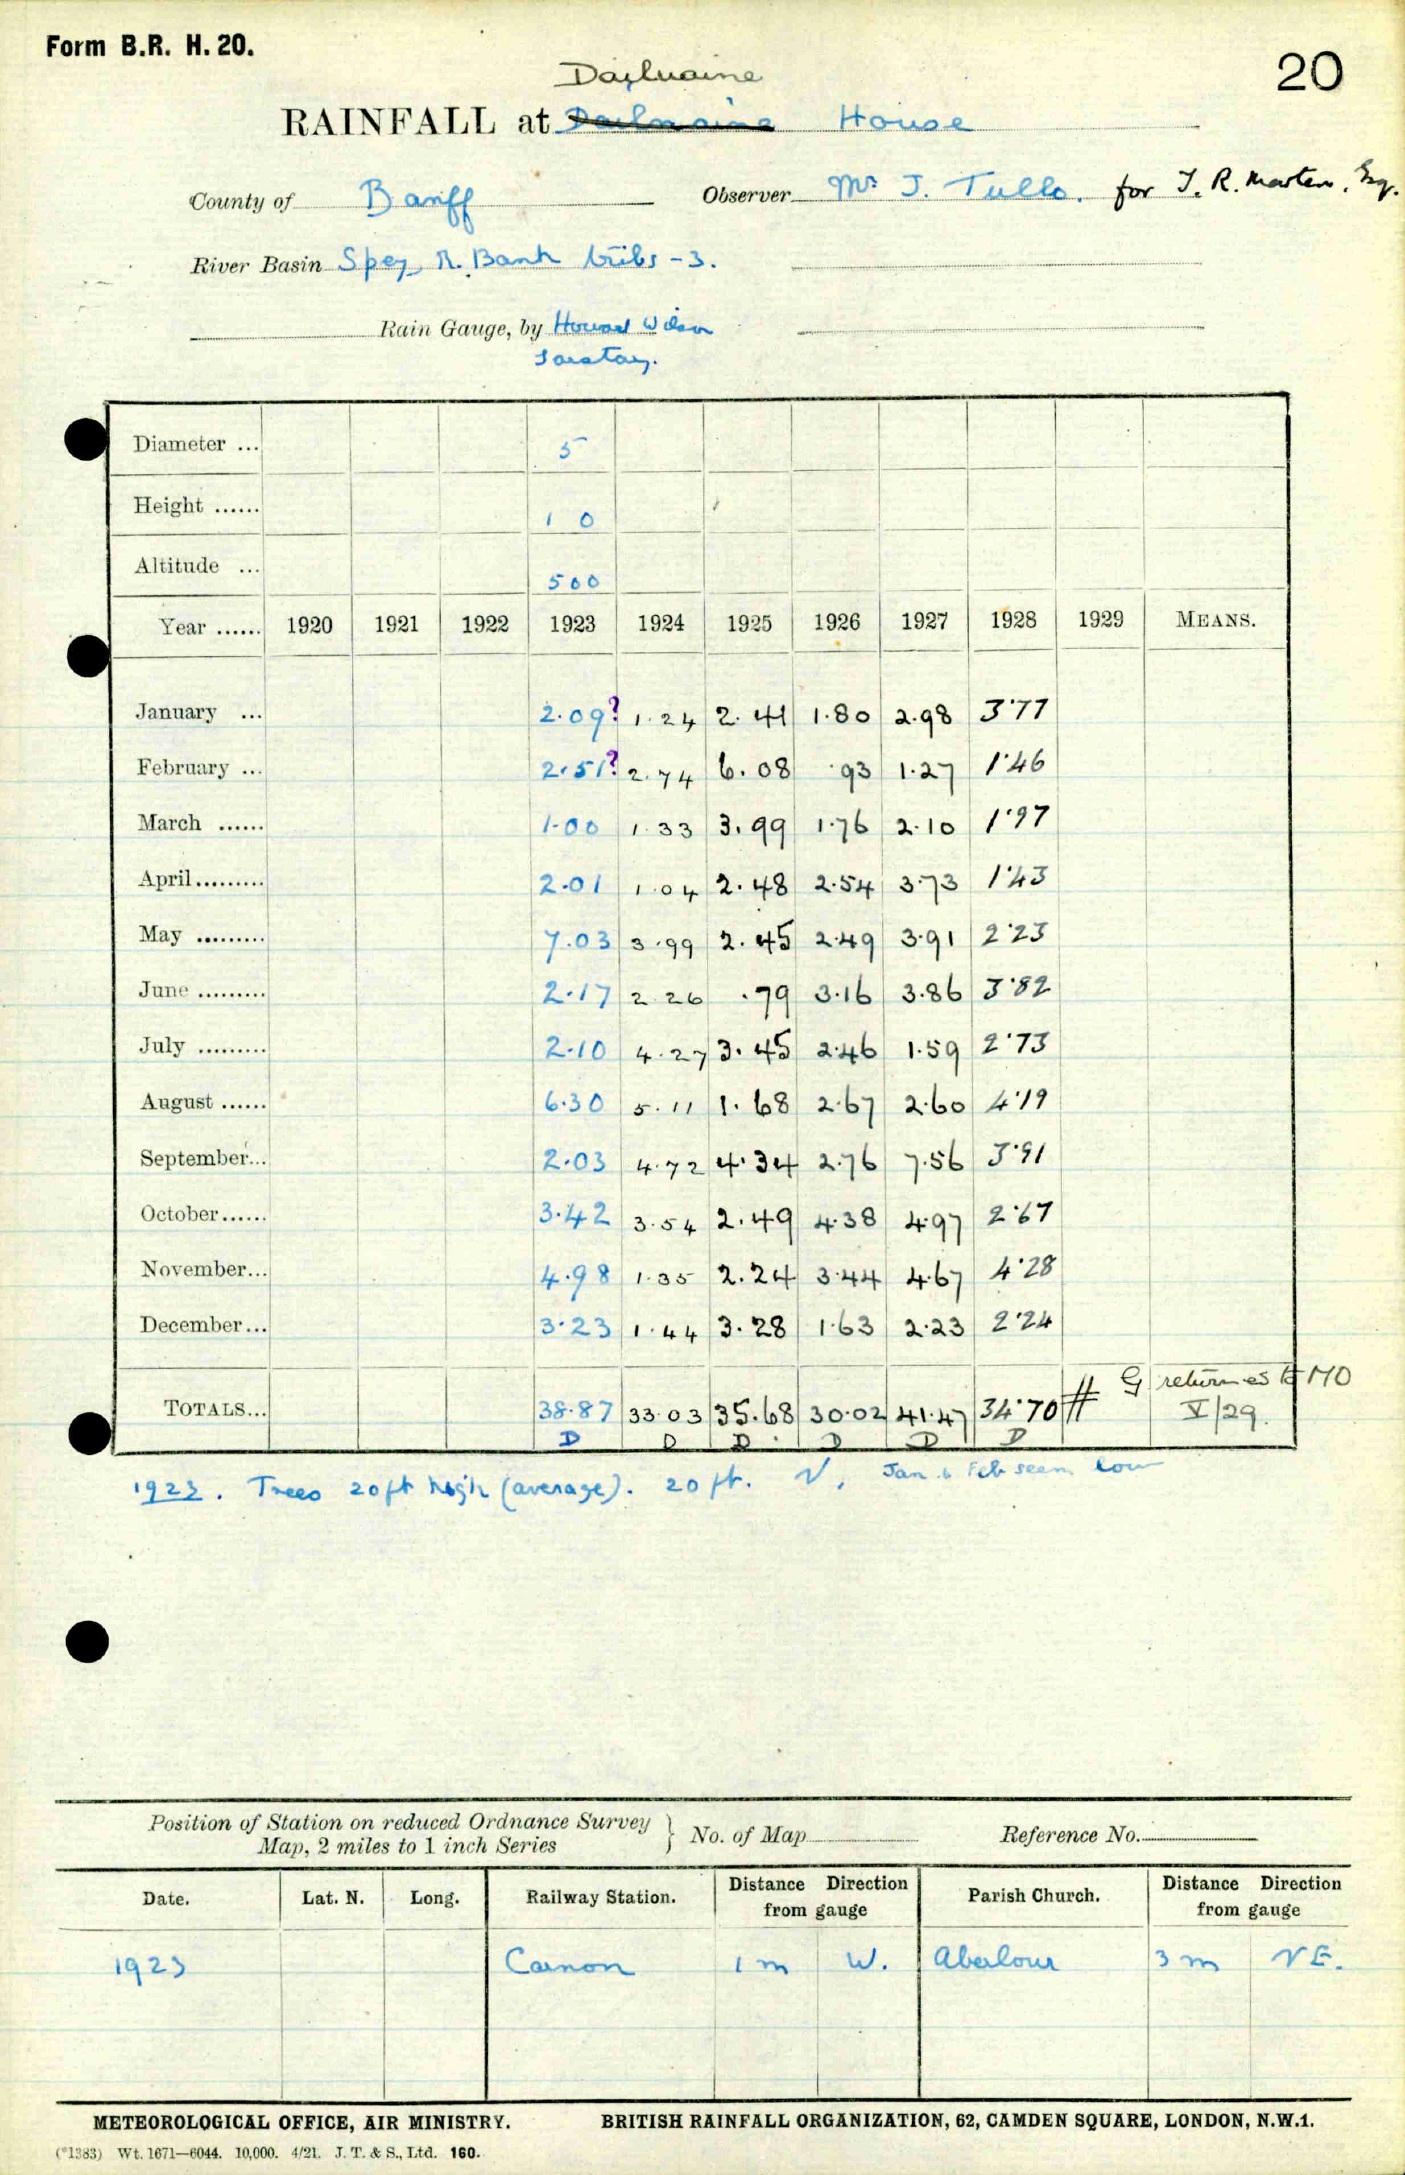 Form B.R. H. 20.
20
Dailuaine
RAINFALL at Dailuaine House
County of Banff Observer Mr J. Tullo. for J. R. Martin, Esq.
River Basin Spey, R. Bank tribs - 3.
Rain Gauge, by Howard Wilson
Diameter ... 5
Height ...... 1 0
Altitude ... 500
Year ...... 1920 1921 1922 1923 1924 1925 1926 1927 1928 1929 MEANS.
January ... 2.09? 1.24 2.41 1.80 2.98 3.77
February ... 2.51? 2.74 6.08 .93 1.27 1.46
March ...... 1.00 1.33 3.99 1.76 2.10 1.97
April......... 2.01 1.04 2.48 2.54 3.73 1.43
May ......... 7.03 3.99 2.45 2.49 3.91 2.23
June ......... 2.17 2.26 .79 3.16 3.86 3.82
July ......... 2.10 4.27 3.45 2.46 1.59 2.73
August ...... 6.30 5.11 1.68 2.67 2.60 4.19
September... 2.03 4.72 4.34 2.76 7.56 3.91
October...... 3.42 3.54 2.49 4.38 4.97 2.67
November... 4.98 1.35 2.24 3.44 4.67 4.28
December... 3.23 1.44 3.28 1.63 2.23 2.24
G returnes to MO
TOTALS... 38.87 33.03 35.68 30.02 41.47 34.70 # V/29.
D D D D D D
1923. Trees 20ft high (average). 20 ft. N, Jan & Feb seem low
Position of Station on reduced Ordnance Survey
Map, 2 miles to 1 inch Series } No. of Map Reference No.
Date. Lat. N. Long. Railway Station. Distance Direction from gauge Parish Church. Distance Direction from gauge
1923 Carron 1 m W. Aberlour 3 m NE.
METEOROLOGICAL OFFICE, AIR MINISTRY. BRITISH RAINFALL ORGANIZATION, 62, CAMDEN SQUARE, LONDON, N.W.1.
(*1383) Wt. 1671—6044. 10,000. 4/21. J. T. & S., Ltd. 160.